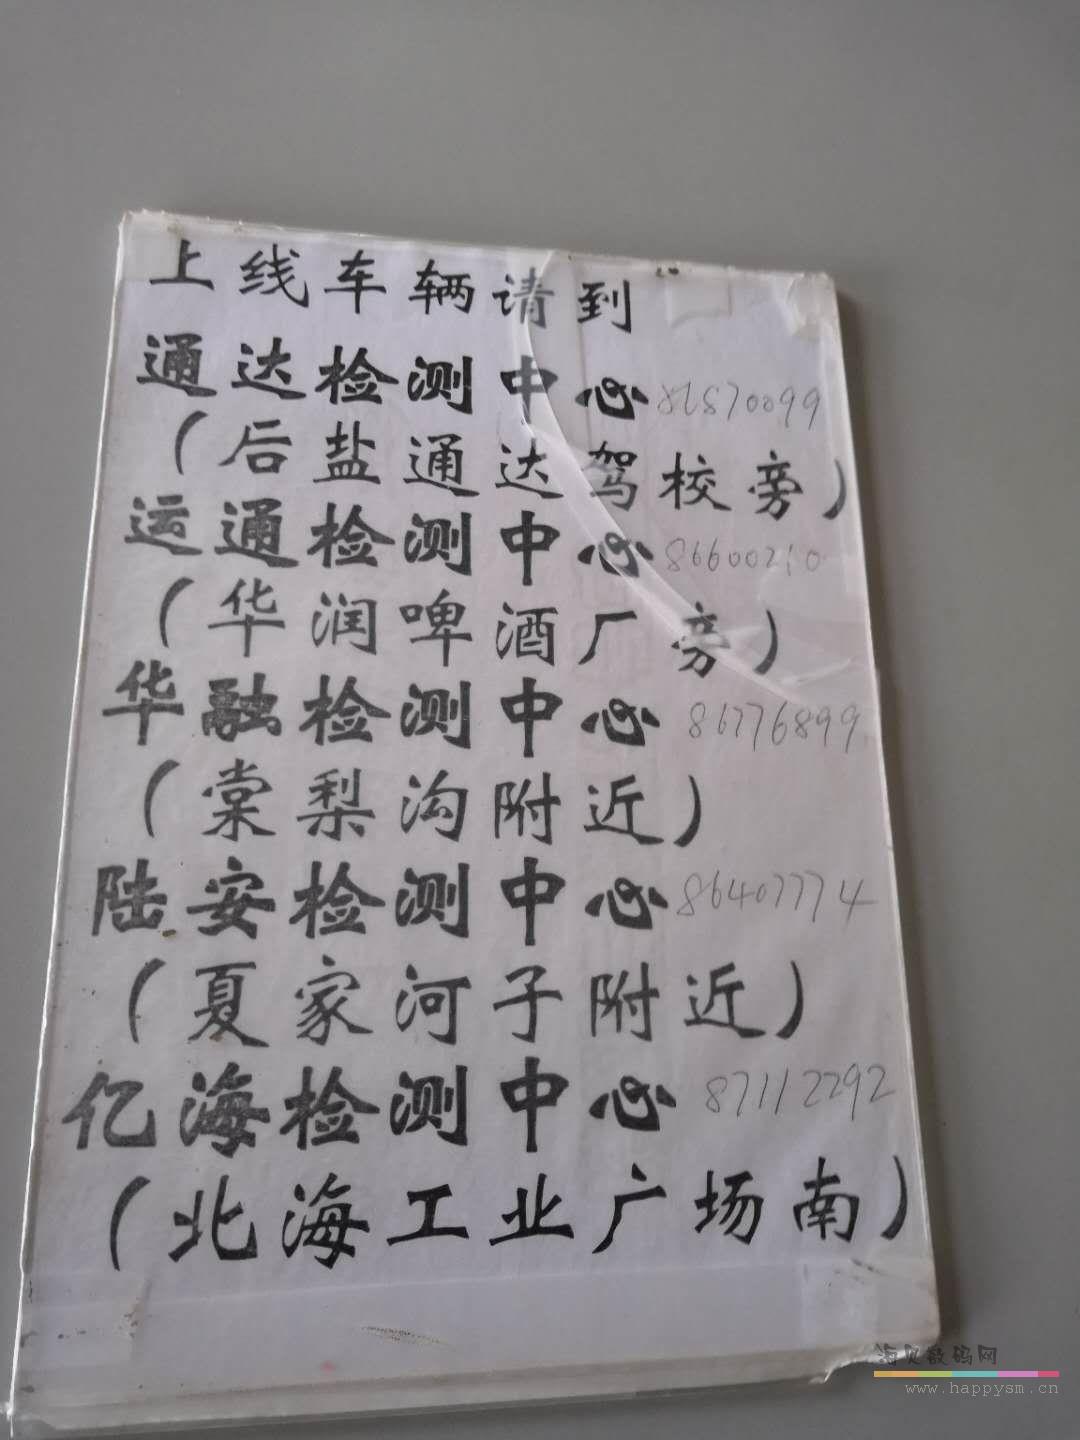 上线车辆请到
通达检测中心 86870099
(后盐通达驾校旁)
运通检测中心 86600210
(华润啤酒厂旁)
华融检测中心 86776899
(棠梨沟附近)
陆安检测中心 86407774
(夏家河子附近)
亿海检测中心 87112292
(北海工业广场南)
海贝数码网
www.happysm.cn